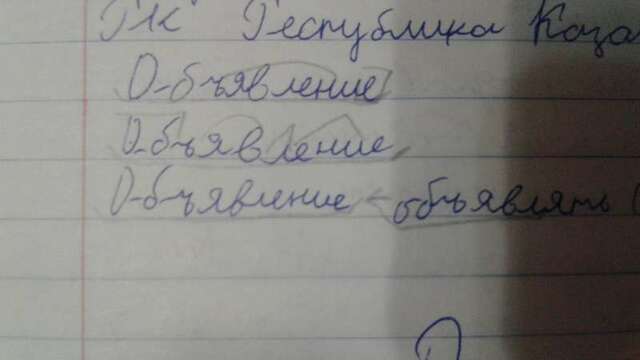 РК Республика Каза
О-бъявление
О-бъявление
О-бъявление ← объявлять (